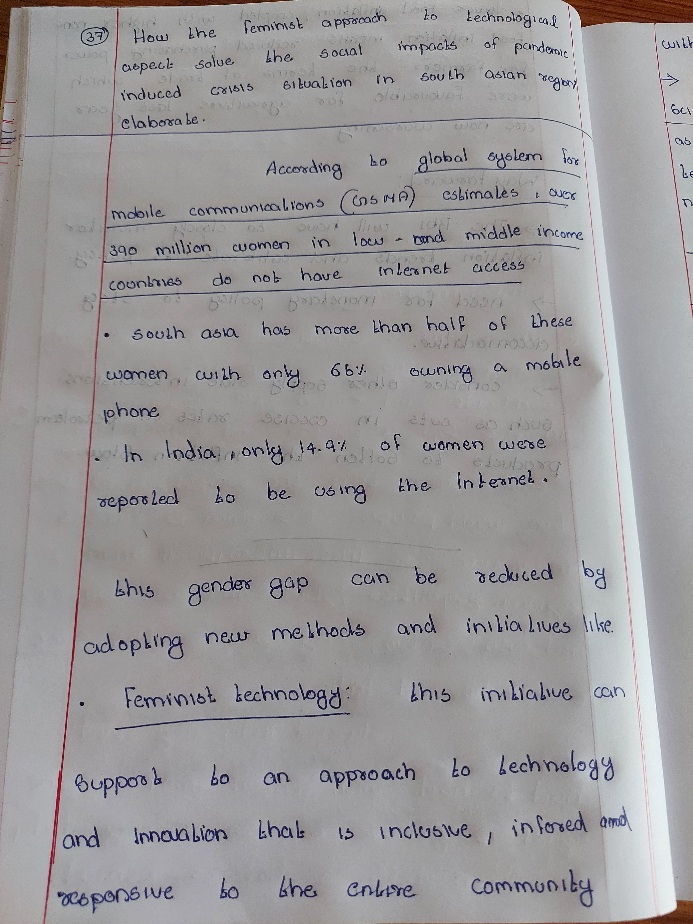 37 How the feminist approach to technological
aspect solve the social impacts of pandemic
induced crisis situation in south asian region,
elaborate.
According to global system for
mobile communications (GSMA) estimates, over
390 million women in low - and middle income
countries do not have internet access
• south asia has more than half of these
women with only 66% owning a mobile
phone
• In India, only 14.9% of women were
reported to be using the internet.
this gender gap can be reduced by
adopting new methods and initiatives like
• Feminist technology: this initiative can
support to an approach to technology
and innovation that is inclusive, infored and
responsive to the entire community
with
→
sci
as
be
n